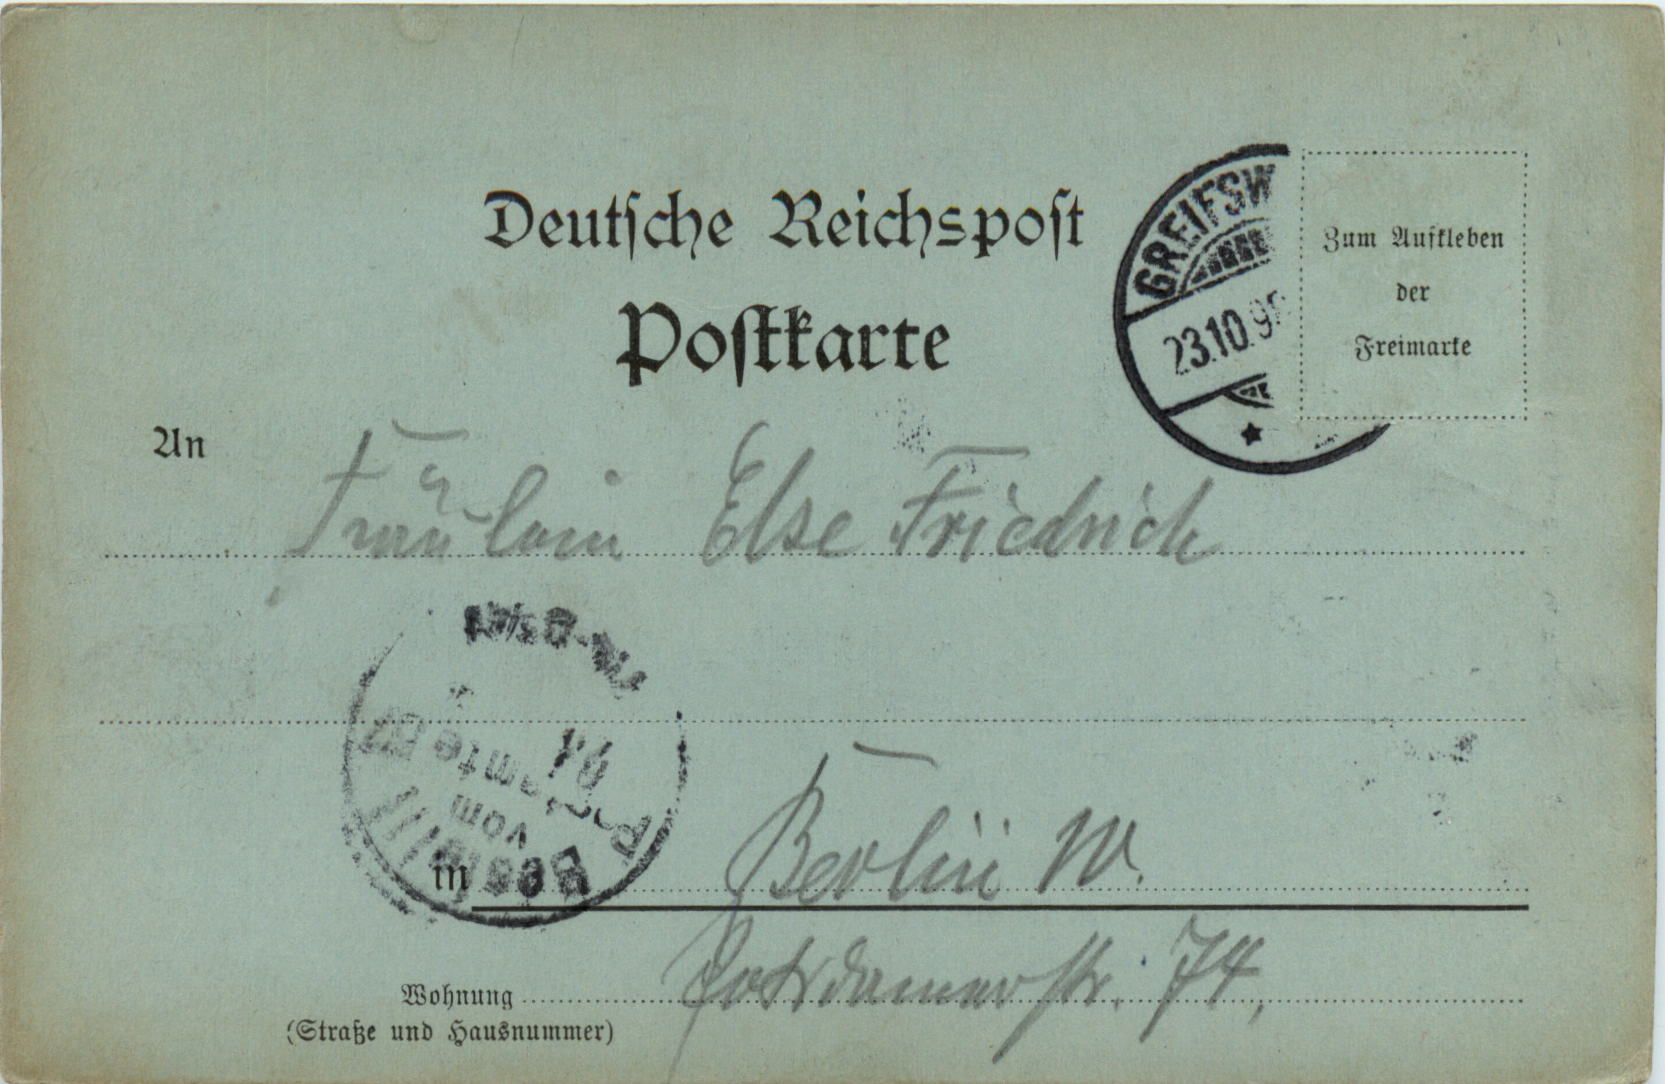 Deutsche Reichspost
Postkarte
GREIFSW
23.10.9
Zum Aufkleben
der
Freimarke
An
Fräulein Else Friedrich
Bestellt
vom
Postamte
in
Berlin W.
Wohnung
Potsdamerstr. 74,
(Straße und Hausnummer)